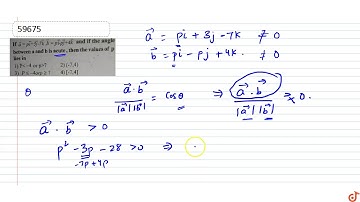 59675
If a = pi+3j-7k, b = pi-pj+4k and if the angle
between a and b is acute, then the values of p
lies in
1) P<-4 or p>7 2) (-7,4)
4) [-7,4]
a⃗ = pi + 3j - 7k ≠ 0
b⃗ = pi - pj + 4k. ≠ 0
θ
a⃗ . b⃗ / |a⃗| |b⃗| = cosθ ⇒ a⃗ . b⃗ / |a⃗| |b⃗| > 0.
a⃗ . b⃗ > 0
p² - 3p - 28 > 0 ⇒
-7p + 4p
doubtnut